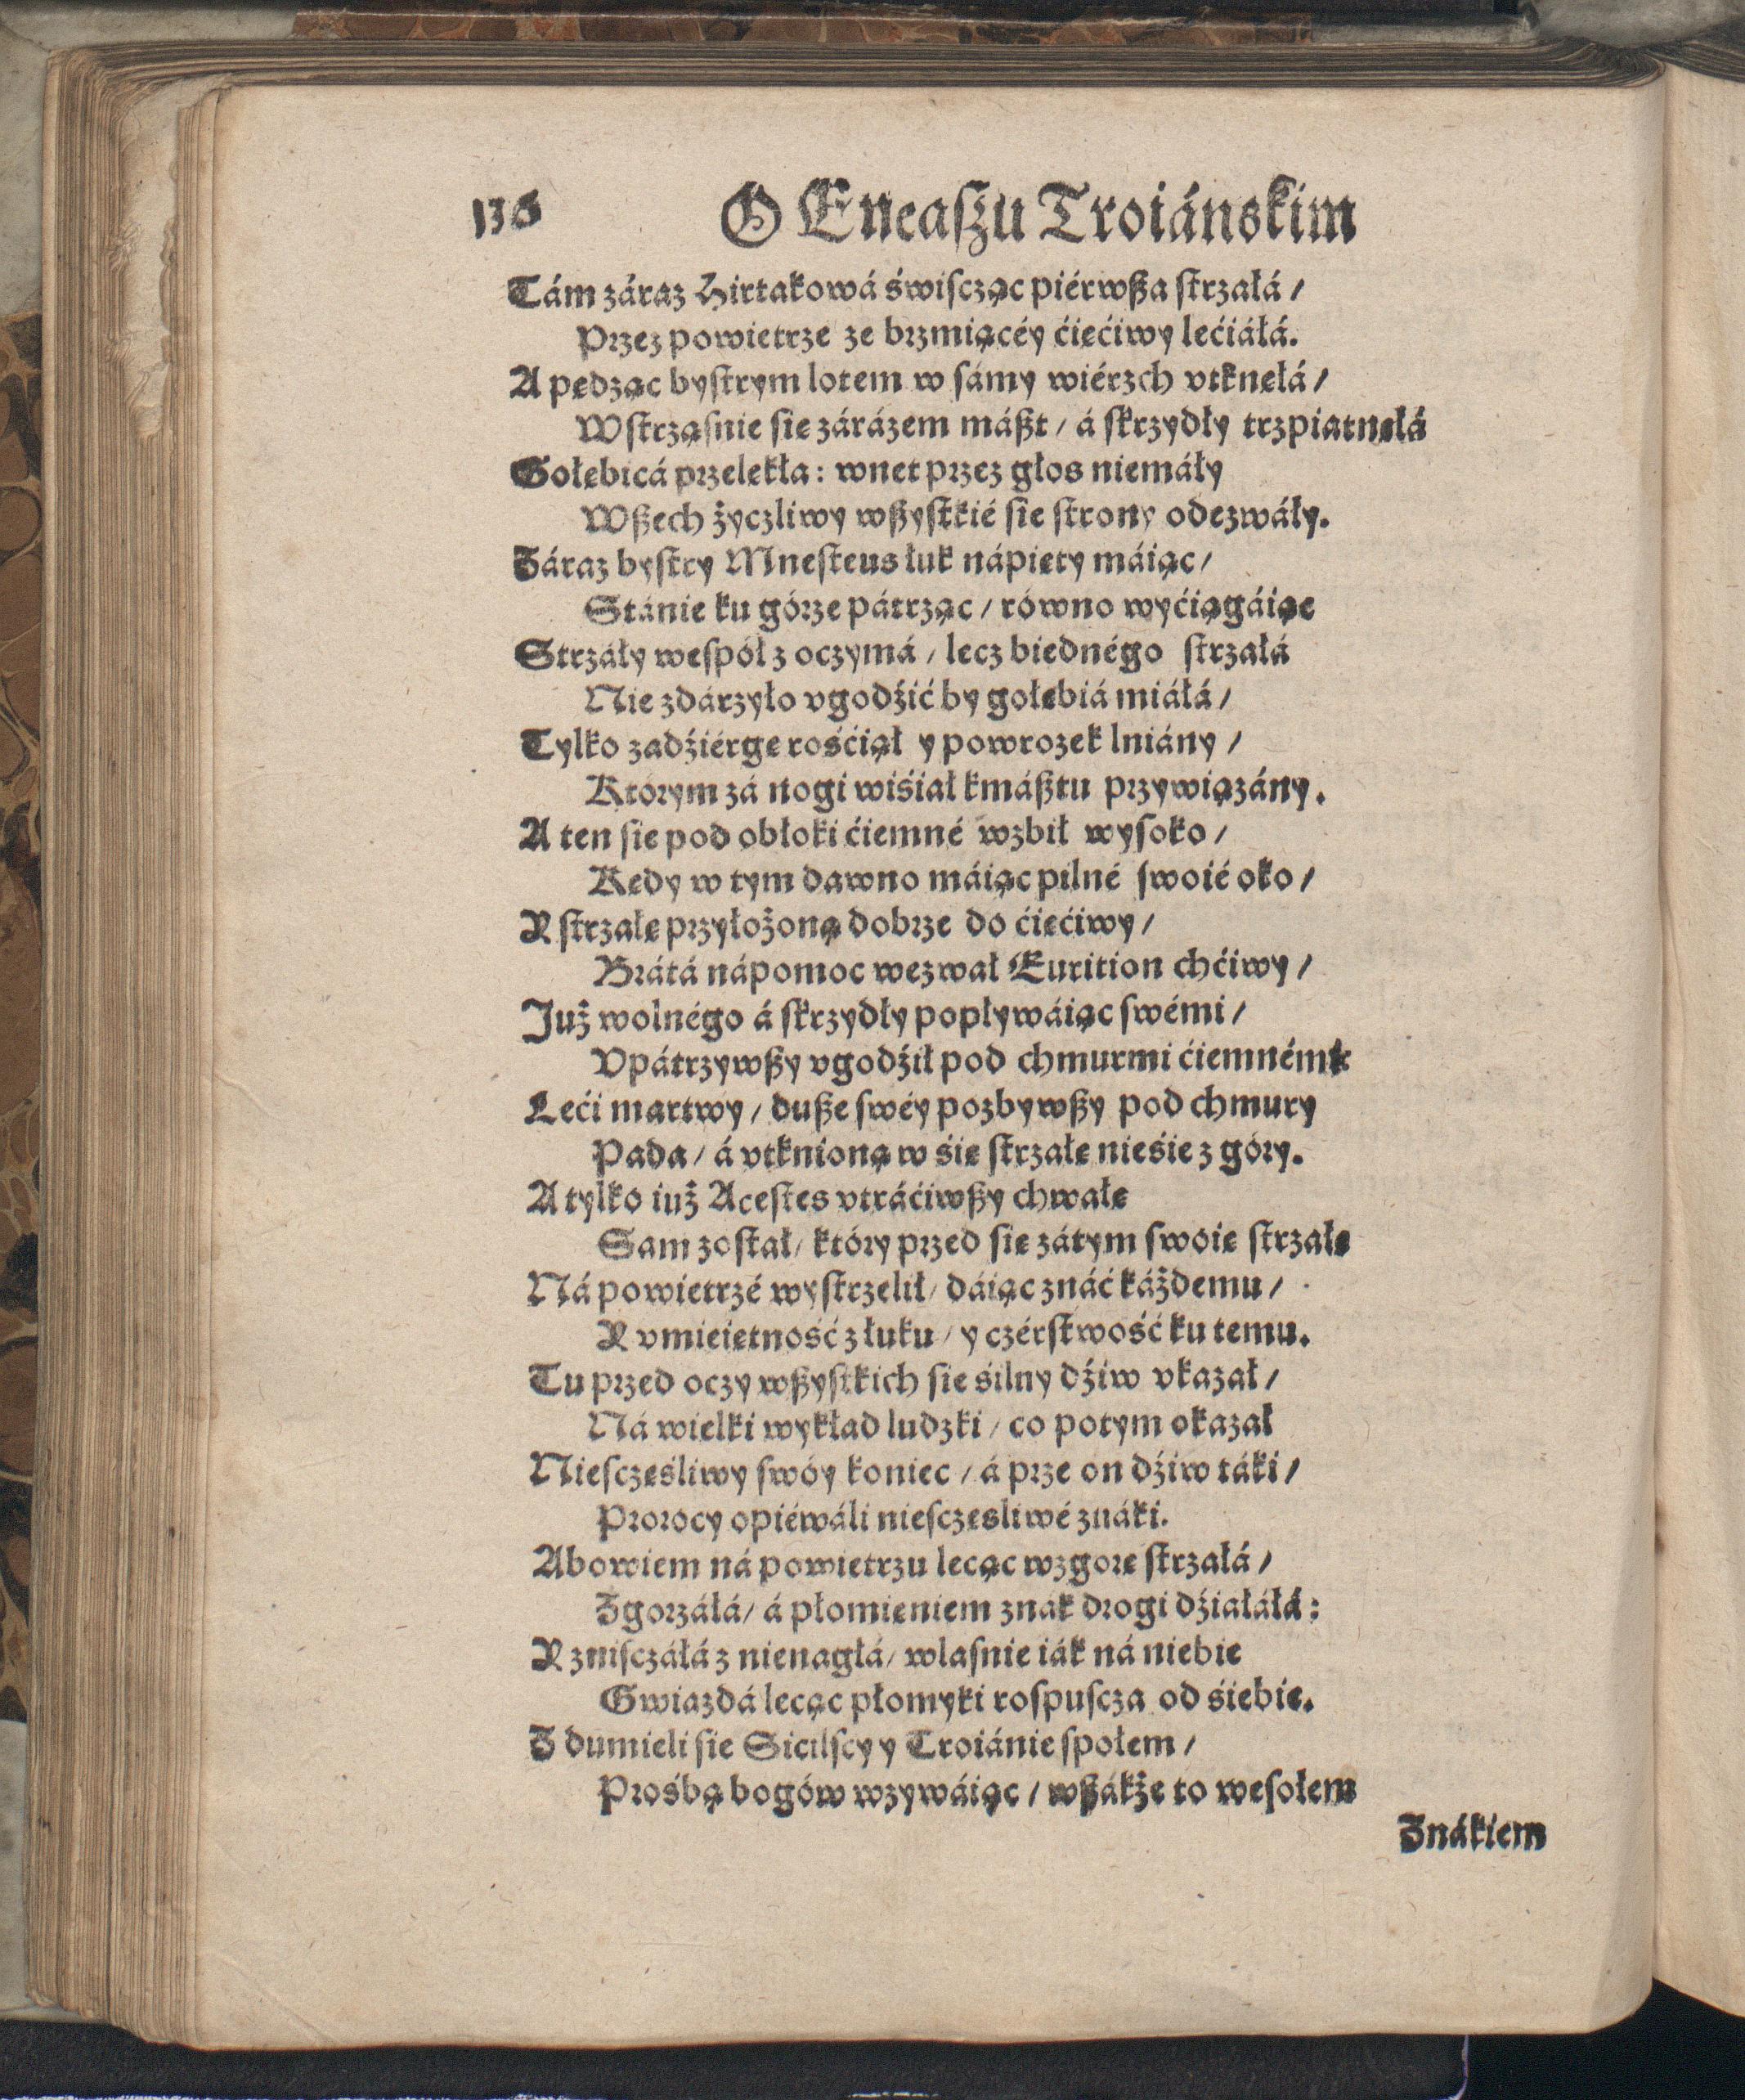 136 O Eneaſzu Troiánskim
Tám záraz Hirtakowá świſcząc piérwßa ſtrzałá /
Przez powietrze ze brzmiącéy ćięćiwy lećiáłá.
A pędząc byſtrym lotem w ſámy wiérzch vtknęłá /
Wſtrząſnie ſię zárázem máßt / á ſkrzydły trzpiatnęłá
Gołębicá przelękła: wnet przez głos niemáły
Wßech życzliwy wßyſtkié ſię ſtrony odezwáły.
Záraz byſtry Mneſteus łuk nápięty máiąc /
Stánie ku górze pátrząc / równo wyćiągáiąc
Strzáły weſpół z oczymá / lecz biednégo ſtrzałá
Nie zdárzyło vgodźić by gołębiá miáłá /
Tylko zadźiérgę rośćiął y powrozek lniány /
Którym zá nogi wiśiał kmáßtu przywiązány.
A ten ſię pod obłoki ćiemné wzbił wyſoko /
Kędy w tym dawno máiąc pilné ſwoié oko /
Y ſtrzałę przyłożoną dobrze do ćięćiwy /
Brátá nápomoc wezwał Eurition chćiwy /
Już wolnégo á ſkrzydły popływáiąc ſwémi /
Vpátrzywßy vgodźił pod chmurmi ćiemnémi
Leći martwy / dußę ſwéy pozbywßy pod chmury
Pada / á vtknioną w śię ſtrzałę nieśie z góry.
A tylko iuż Aceſtes vtráćiwßy chwałę
Sam zoſtał / który przed ſię zátym ſwoię ſtrzałę
Ná powietrzé wyſtrzelił / dáiąc znáć káżdemu /
Y vmieiętność z łuku / y czérſtwość ku temu.
Tu przed oczy wßyſtkich ſię śilny dźiw vkazał /
Ná wielki wykład ludzki / co potym okazał
Nieſczęśliwy ſwóy koniec / á prze on dźiw táki /
Prorocy opiéwáli nieſczęsliwé znáki.
Abowiem ná powietrzu lecąc wzgorę ſtrzałá /
Zgorzáłá / á płomieniem znak drogi dźiałáłá:
Y zniſczáłá z nienagłá / wlaſnie iák ná niebie
Gwiazdá lecąc płomyki roſpuſcza od śiebie.
Zdumieli ſię Sicilſcy y Troiánie społem /
Prośbą bogów wzywáiąc / wßákże to weſołem
Znákiem